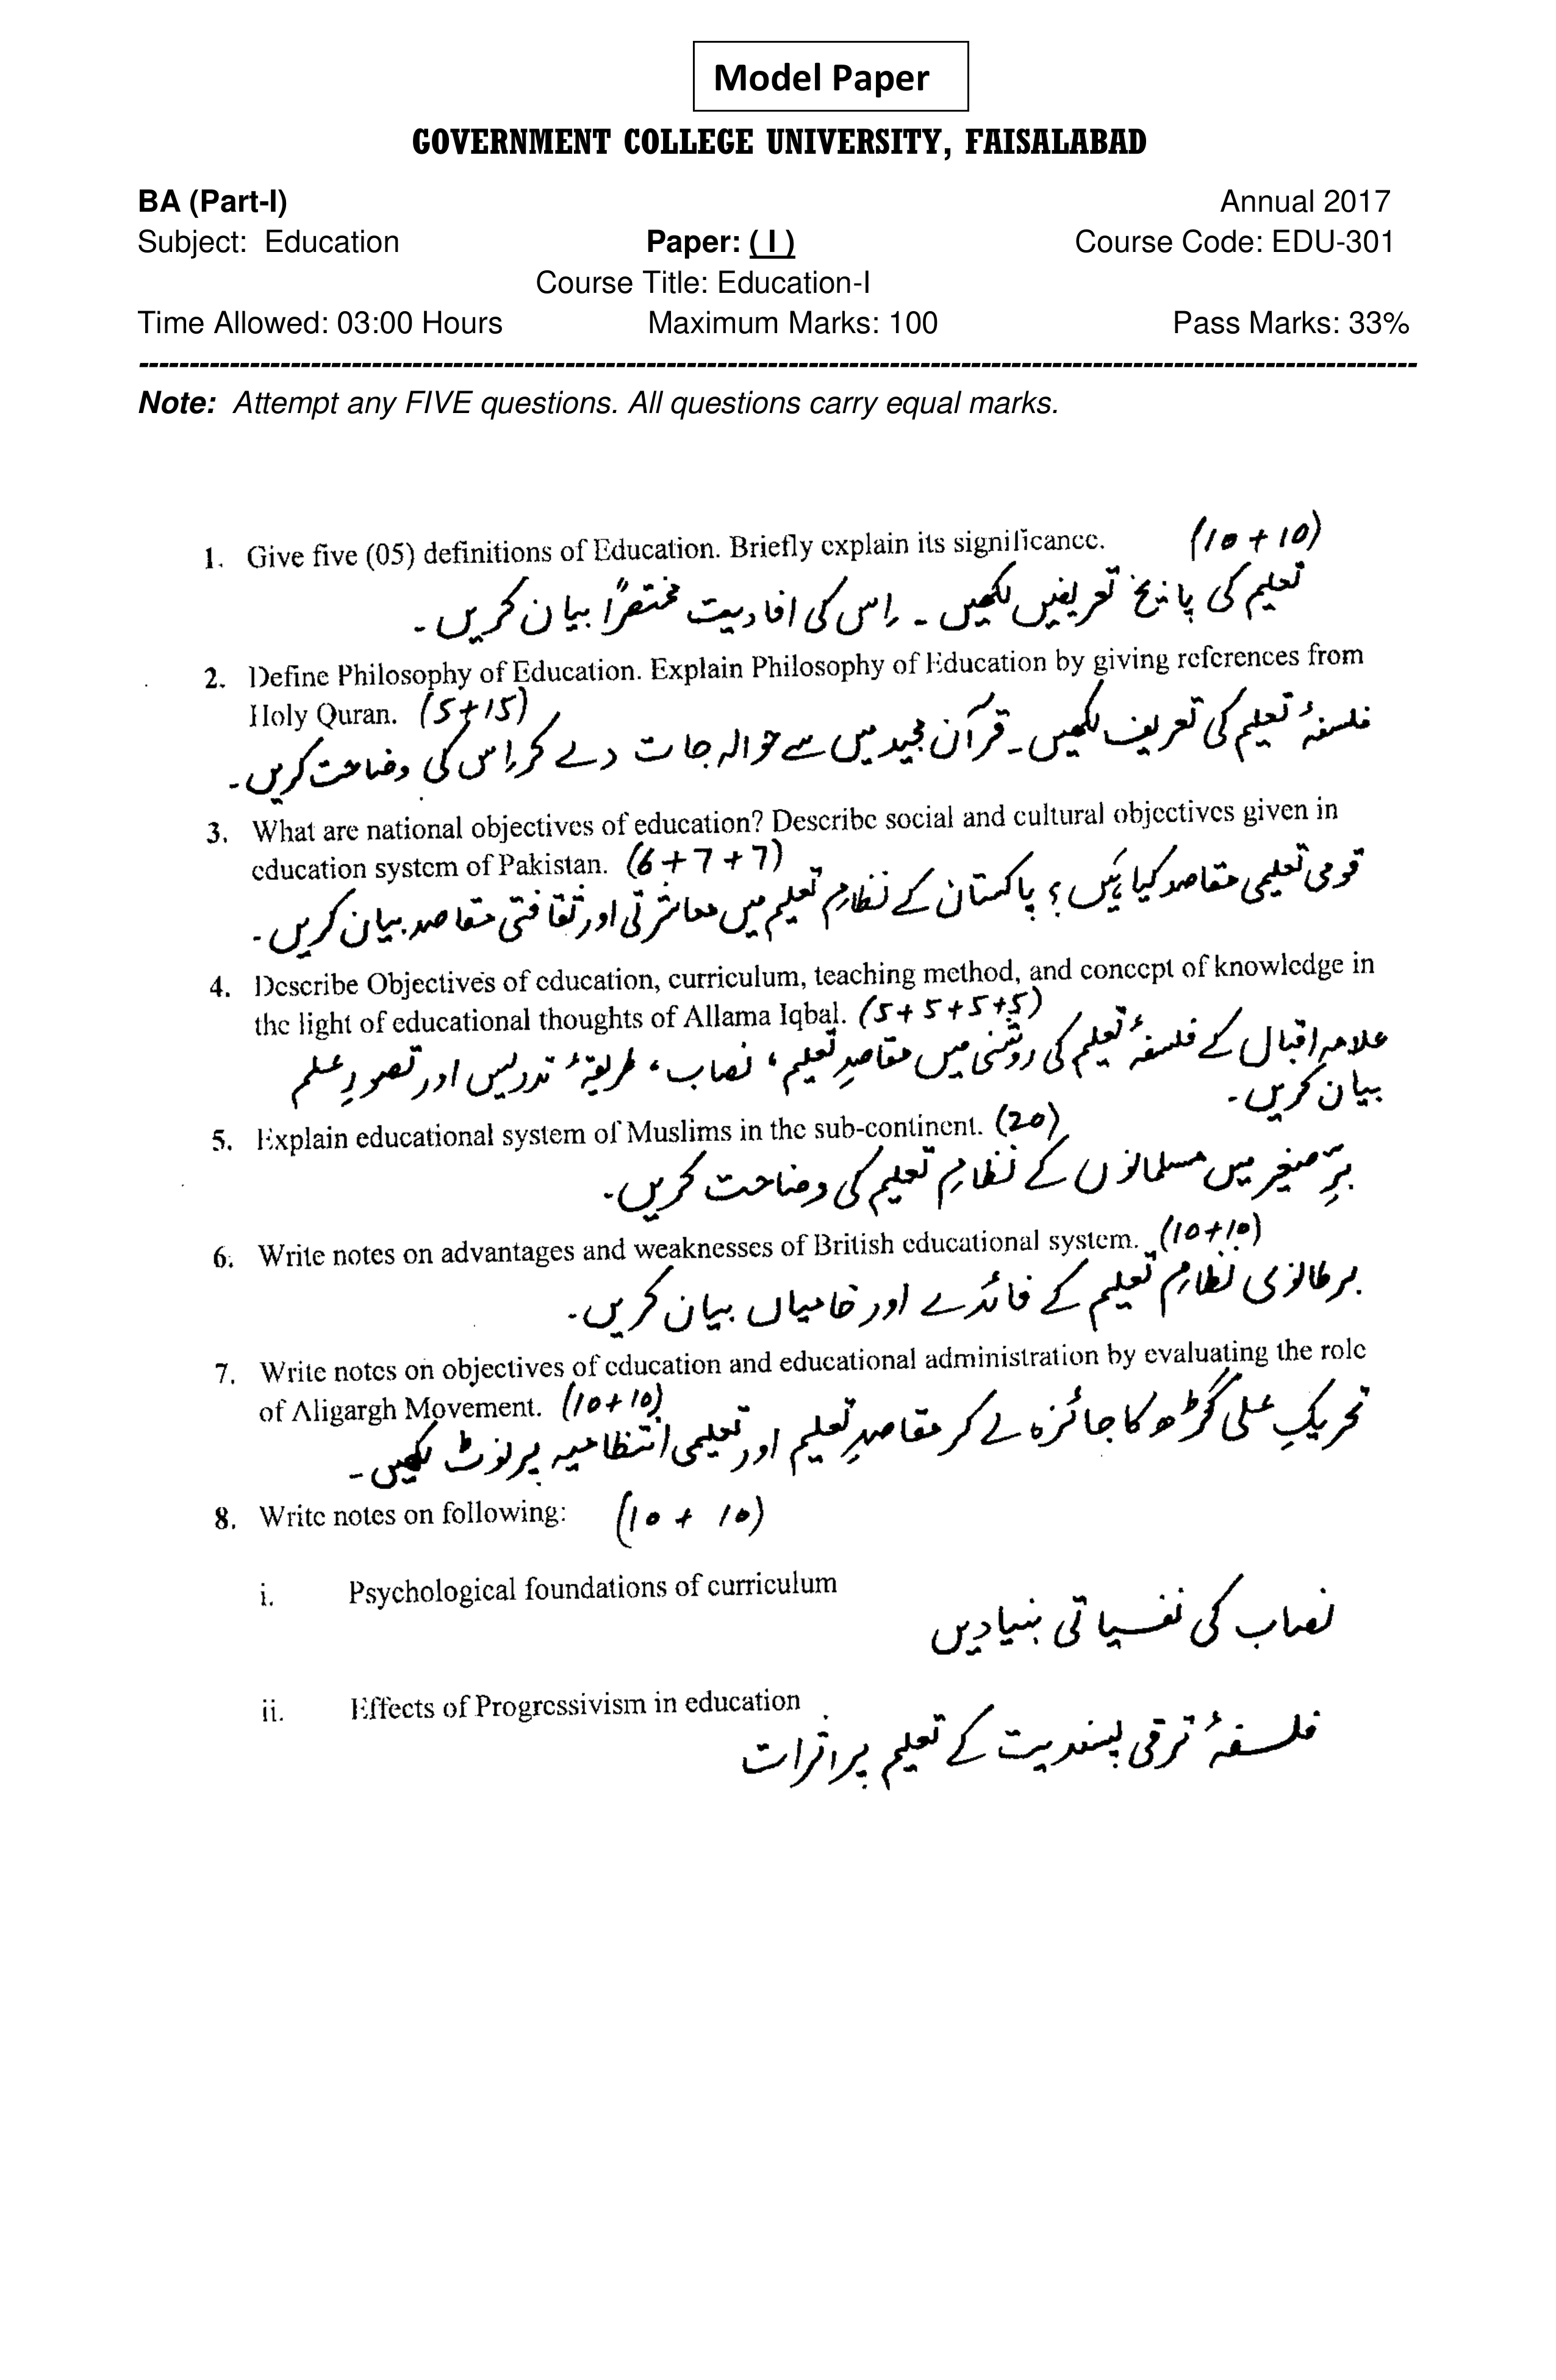 Model Paper
GOVERNMENT COLLEGE UNIVERSITY, FAISALABAD
BA (Part-I) Annual 2017
Subject: Education Paper: ( I ) Course Code: EDU-301
Course Title: Education-I
Time Allowed: 03:00 Hours Maximum Marks: 100 Pass Marks: 33%
Note: Attempt any FIVE questions. All questions carry equal marks.
1. Give five (05) definitions of Education. Briefly explain its significance. (10 + 10)
تعلیم کی پانچ تعریفیں لکھیں۔ اِس کی افادیت مختصراً بیان کریں۔
2. Define Philosophy of Education. Explain Philosophy of Education by giving references from
Holy Quran. (5+15)
فلسفۂ تعلیم کی تعریف لکھیں۔ قرآن مجید میں سے حوالہ جات دے کر اِس کی وضاحت کریں۔
3. What are national objectives of education? Describe social and cultural objectives given in
education system of Pakistan. (6+7+7)
قومی تعلیمی مقاصد کیا ہیں؟ پاکستان کے نظامِ تعلیم میں معاشرتی اور ثقافتی مقاصد بیان کریں۔
4. Describe Objectives of education, curriculum, teaching method, and concept of knowledge in
the light of educational thoughts of Allama Iqbal. (5+5+5+5)
علامہ اقبال کے فلسفۂ تعلیم کی روشنی میں مقاصدِ تعلیم، نصاب، طریقۂ تدریس اور تصورِ علم
بیان کریں۔
5. Explain educational system of Muslims in the sub-continent. (20)
برِّصغیر میں مسلمانوں کے نظامِ تعلیم کی وضاحت کریں۔
6. Write notes on advantages and weaknesses of British educational system. (10+10)
برطانوی نظامِ تعلیم کے فائدے اور خامیاں بیان کریں۔
7. Write notes on objectives of education and educational administration by evaluating the role
of Aligarh Movement. (10+10)
تحریکِ علی گڑھ کا جائزہ لے کر مقاصدِ تعلیم اور تعلیمی انتظامیہ پر نوٹ لکھیں۔
8. Write notes on following: (10 + 10)
i. Psychological foundations of curriculum
نصاب کی نفسیاتی بنیادیں
ii. Effects of Progressivism in education
فلسفۂ ترقی پسندیت کے تعلیم پر اثرات